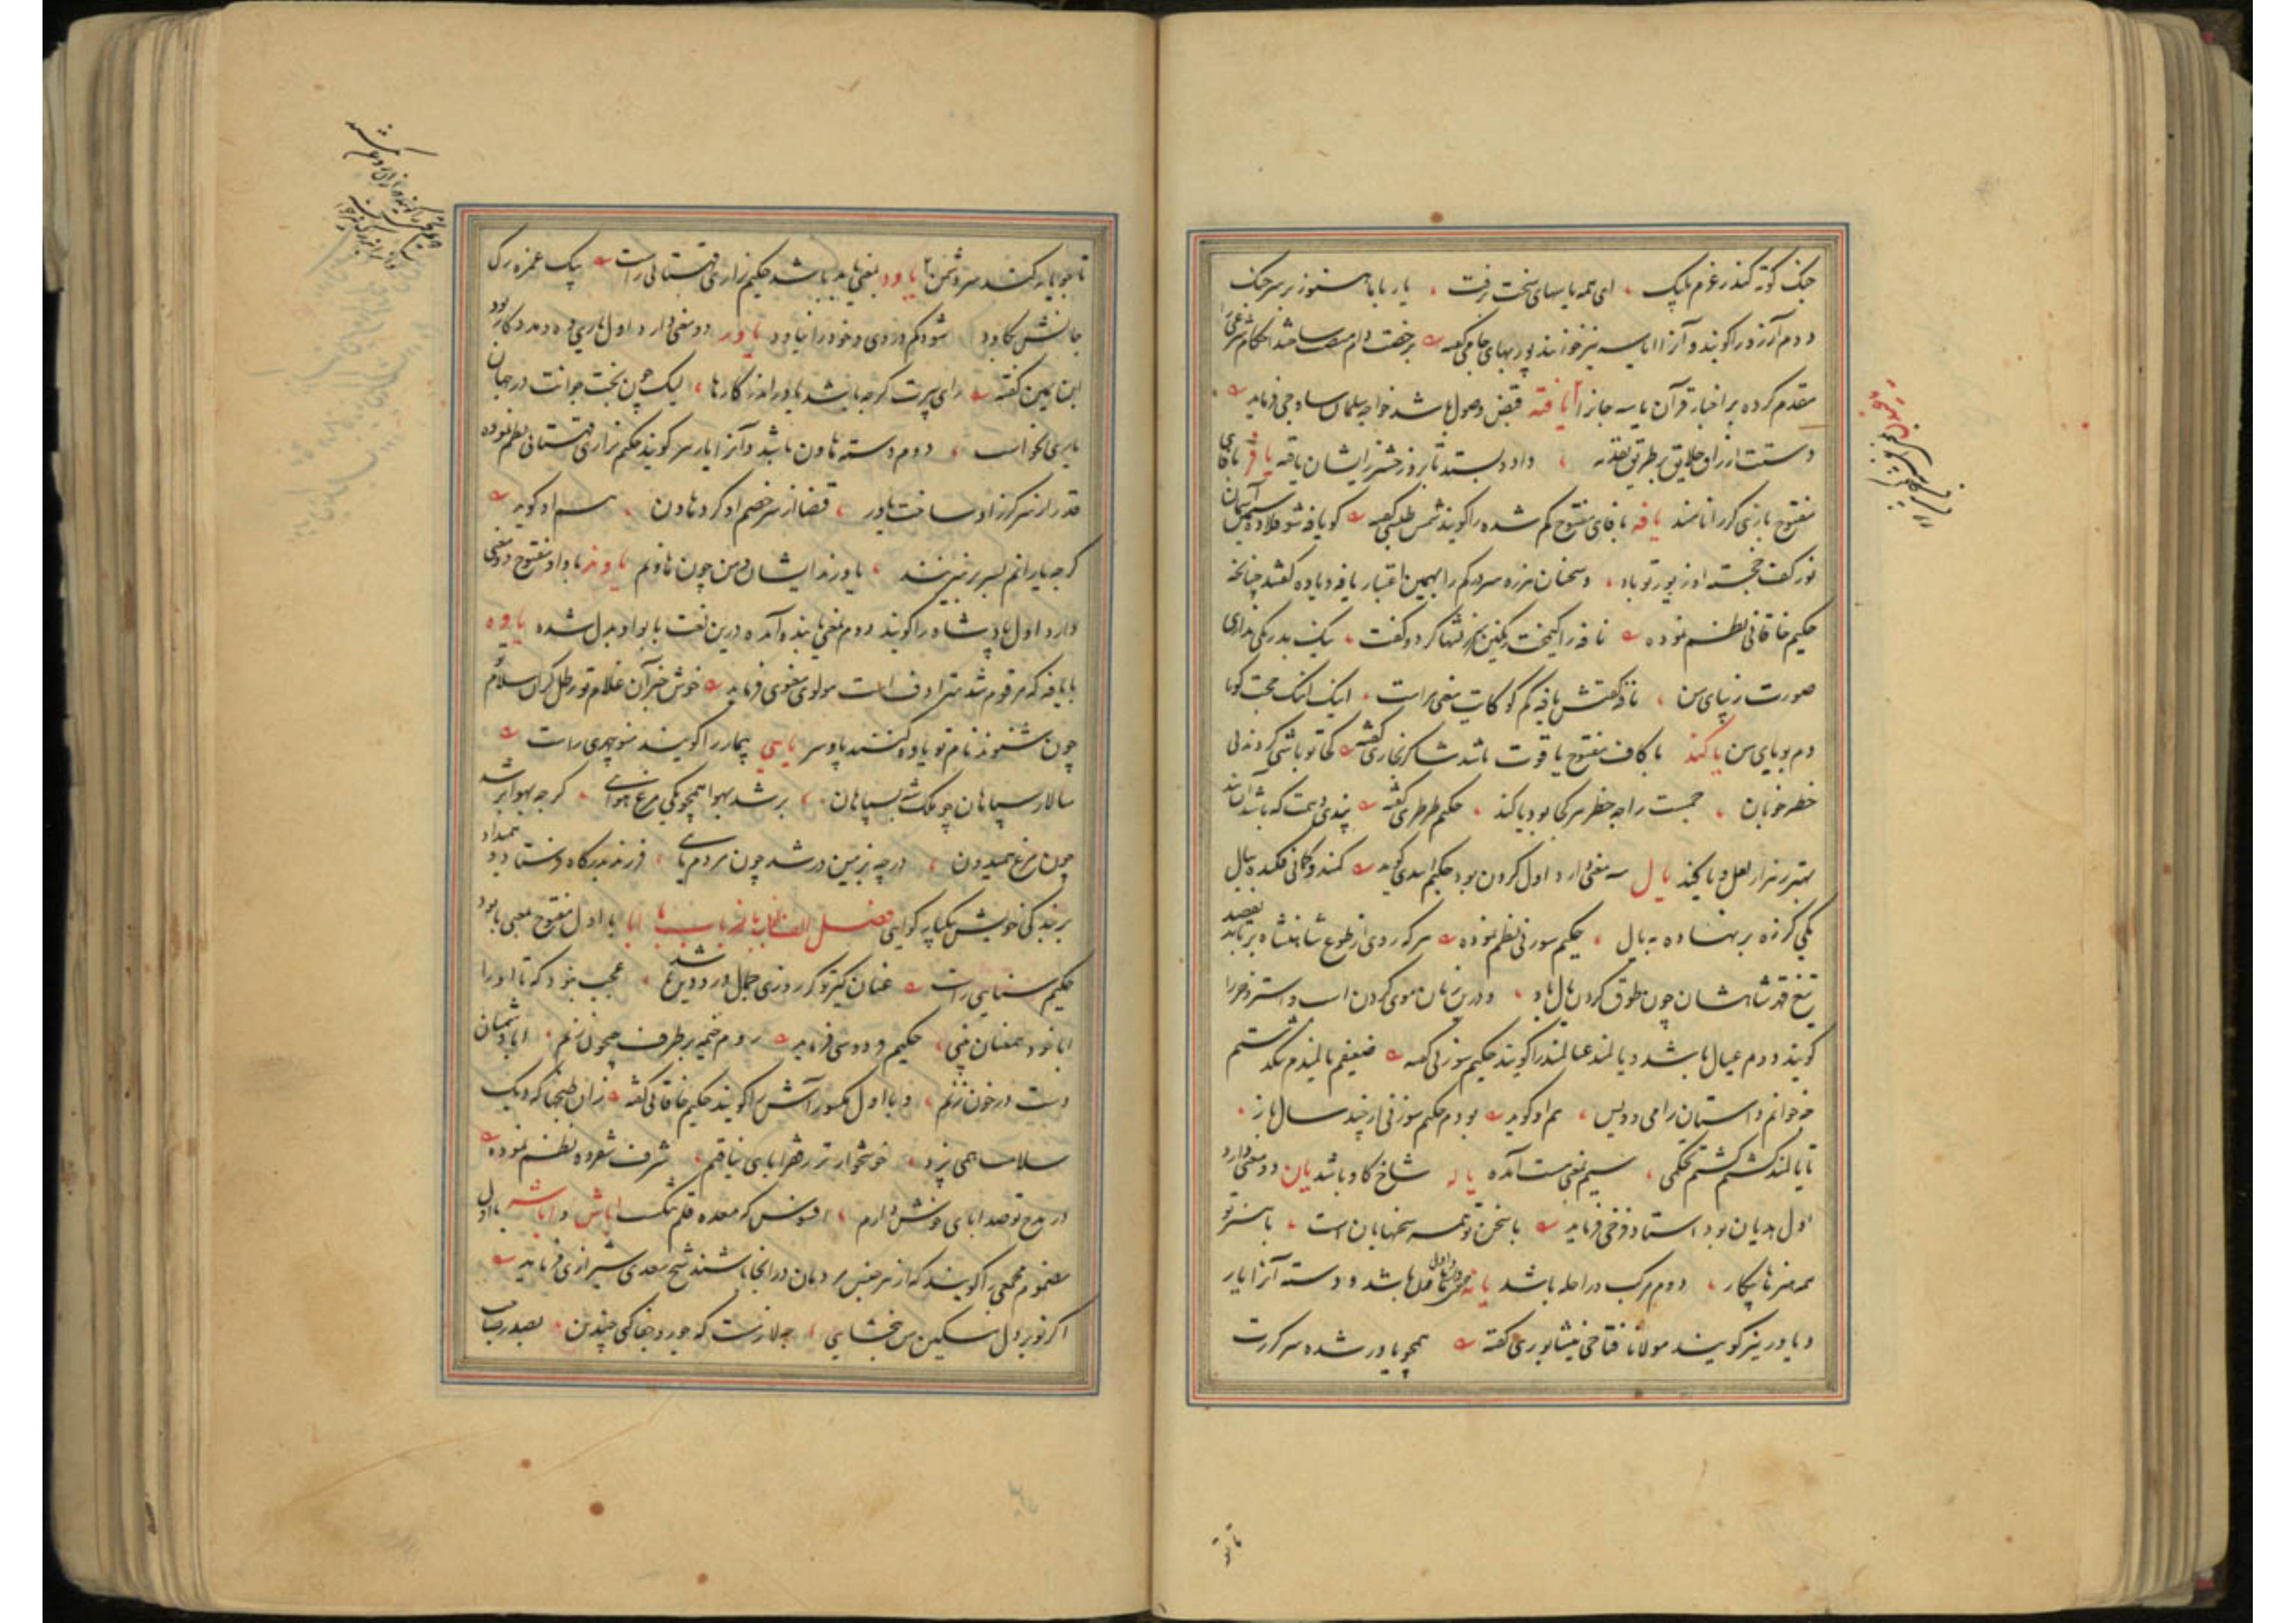 جنک کوته کند زغرم پلپک ، ای همه یاسهای سخت برفت ، یار با ما هنوز بر سر جنک
دوم آرزو را کویند و آنرا ایاسه نیز خوانند پوربهای جامی کفته برخصت
مقدم کرده بر اخبار قرآن یاسه جانرا یافته قبض وصول باشد خواجه سلمان ساوجی فرماید
دستت ارزاق خلایق بر طریق تقدمه ، داد و بستد تا بروز حشر زایشان یافته یافر با فای
مفتوح بازی کر را نامند یافه با فای مفتوح کم شده را کویند شمس طبسی کفته کو یافه شو قلاده سیمین آسمان
نور کفت خجسته او زیور تو باد ، و سخنان هرزه سردرکم را بهمین اعتبار یافه و یاده کفتند چنانچه
حکیم خاقانی نظم نموده نافه را کیمخت رنکین سرزنشها کرد و کفت ، نیک بد رنکی نداری
صورت زیبای من ، نافه کفتش یافه کم کو کایت معنی مراست ، اینک اینک حجت کویا
دم بویای من یاکند با کاف مفتوح یاقوت باشد شاکر بخاری کفته کجا تو باشی کردند بی
خطر خوبان ، جمست را چه خطر هر کجا بود یاکند ، حکیم طرطری کفته پندی دهمت که باشد آن پند
بهتر ز هزار لعل و یاکند یال سه معنی دارد اول کردن بود حکیم اسدی کوید کمند و کمانی فکنده بیال
یکی کرزه بر نهاده به یال ، حکیم سوزنی نظم نموده هر که روی از طوع شاهنشاه برتابد بقصد
تیغ قهر شاهشان چون طوق کردن یال باد ، و درین زمان موی کردن اسب و استر و خر را
کویند دوم عیال باشد و یالمند عیالمند را کویند حکیم سوزنی کفته ضعیفم یالمندم تنکدستم
چو خوانم داستان رامی و ویس ، هم او کوید بودم حکیم سوزنی ار چند سال باز ،
تا یالمند کشتم کشتم تحکمی ، سیم نعمت آمده یاله شاخ کاو باشد یان دو معنی دارد
اول هذیان بود استاد فرخی فرماید با سخن تو همه سخنها یان است ، با هنر تو
همه هنرها پیکار ، دوم مرکب و راحله باشد یانه هاون باشد و دسته آنرا یار
و یاور نیز کویند مولانا فتاحی نیشابوری کفته همچو یاور شده سرکرت
تا تو
تا بجو یابد کند سر دشمن یاود بمعنی یابد باشد حکیم نزاری قهستانی راست یک غمزه رک
جانش کاود شود کم در وی و خود را نیاود یاور دو معنی دارد اول یاری ده و مددکار بود
ابن یمین کفته رای پیرت کرچه باشد یاور اندر کارها ، لیک چون بخت جوانت در جهان
یاری کجاست ، دوم دسته هاون باشد و آنرا یار نیز کویند حکیم نزاری قهستانی نظم نموده
قدر از سر کرز او ساخت یاور ، قضا از سر خصم او کرد هاون ، هم او کوید
کرچه یارانم بسر بر میزنند ، یاورند ایشان و من چون هاونم یاوند با واو مفتوح دو معنی
دارد اول پادشاه را کویند دوم بمعنی یابنده آمده درین لغت با بواو بدل شده یاوه
با یافه که مرقوم شد مترادف است مولوی معنوی فرماید خوش خبر آن غلام تو رطل کران سلام تو
چون شنوند نام تو یاوه کنند پا و سر یایی بیمار را کویند منوچهری راست
سالار سپاهان چو ملک شد بسپاهان ، برشد بهوا همچو یکی مرغ هوایی ، کرچه بهوا بر شد
چون مرغ همیدون ، ورچه بزمین درشد چون مردم یایی ، فرزند بدرکاه فرستاد و همیداد
بر بندکی خویش یکباره کوایی فصل الف باب با ابا با اول مفتوح بمعنی با بود
حکیم سنایی راست عنان کیر تو کر روزی جمال درد دین باشد ، عجب نبود که تا او را
ابا خود همعنان بینی ، حکیم فردوسی فرماید روم خیمه بر طرف جیحون زنم ، ابا دشمنان
دست در خون زنم ، و با اول مکسور آش را کویند حکیم خاقانی کفته زان طبخها که دیک
سلامت همی پزد ، خوشخوارتر ز فقر ابایی نیافتم ، شرف شفروه نظم نموده
در مدح تو صد ابای خوش دارم ، افسوس که معده قلم تنکست اباش و اباشه با اول
مضموم مجمعی را کویند که از هر جنس مردمان در آنجا باشند شیخ سعدی شیرازی فرماید
اکر تو بر دل مسکین من نبخشایی ، چه لازمست که جور و جفا کنی چندین ، بصدر صاحب